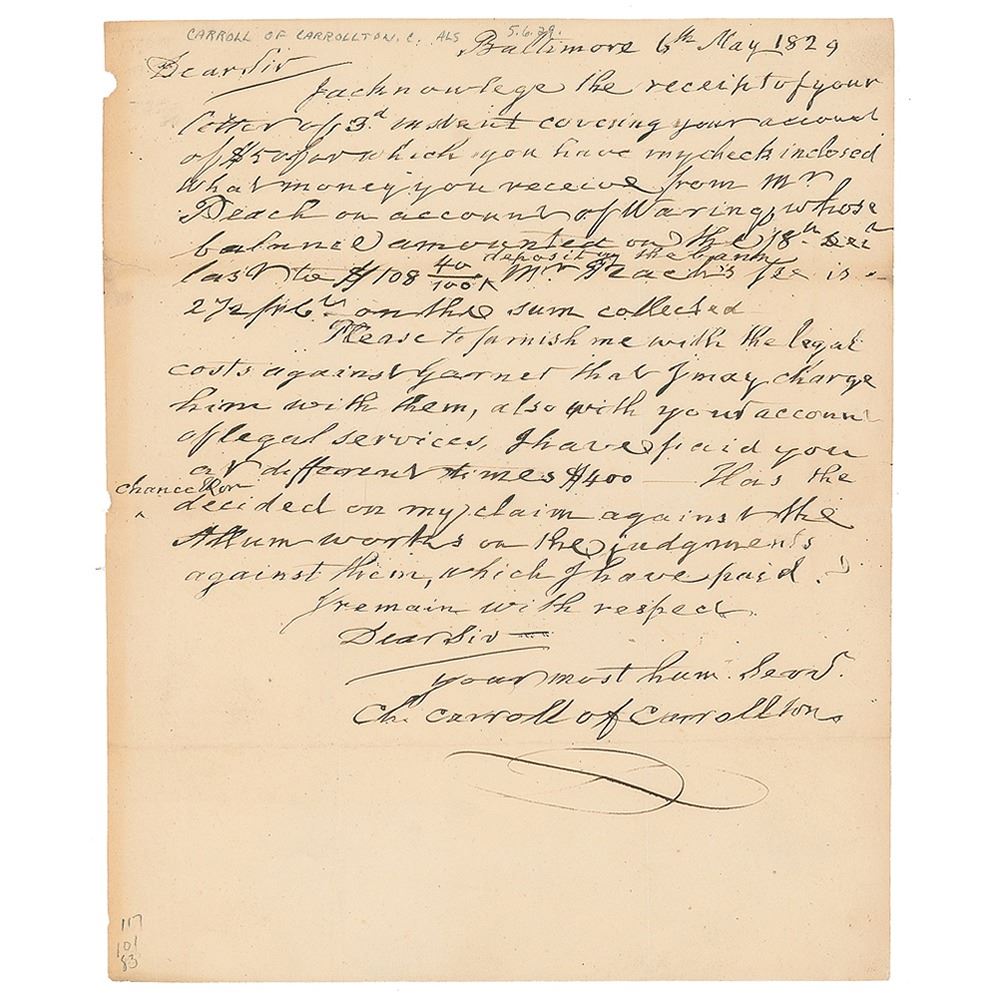 CARROLL OF CARROLLTON, C. ALS 5.6.29.
Baltimore 6th May 1829
Dear Sir
I acknowlege the receipt of your
letter of 3.d instant covering your account
of $50 for which you have my check inclosed
What money you receive from Mr
Beach on account of Waring, whose
balance amounted on the 18th Decr
deposit in the bank
last to $108 40/100 ^ Mr Beach's fee is
2 1/2 pr Ct. on the sum collected
Please to furnish me with the legal
costs against Garner that I may charge
him with them, also with your account
of legal services, I have paid you
at different times $400 — Has the
chancellor
^ decided on my claim against the
Allum works on the judgments
against them, which I have paid. ?
I remain with respect
Dear Sir
your most hum. Servt.
Ch. Carroll of Carrollton
117
101
83